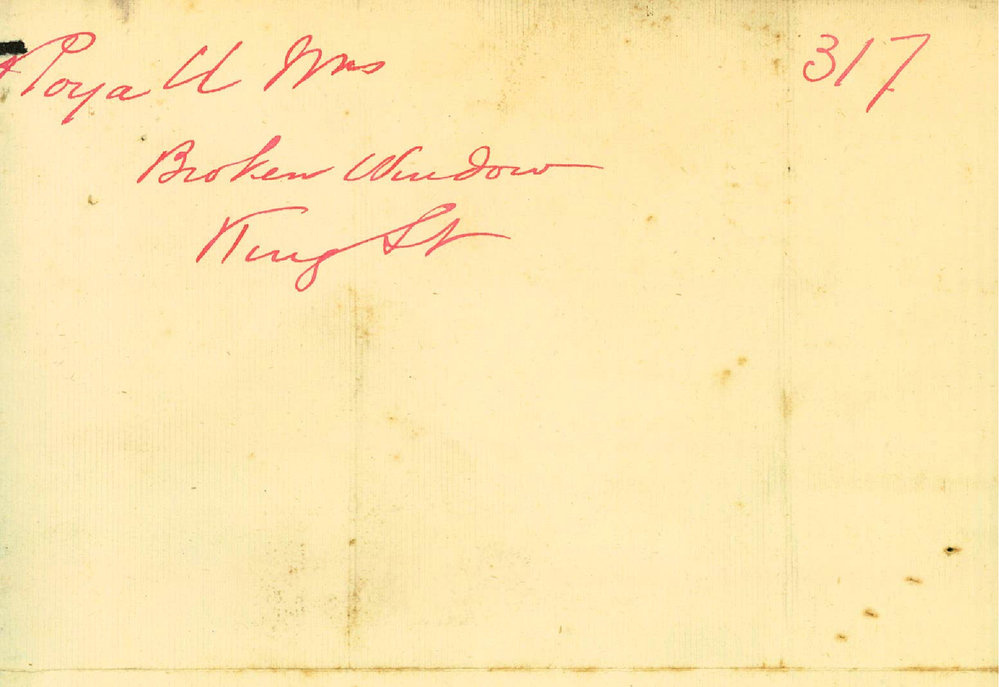 Royall Mrs 317
Broken Window
King St